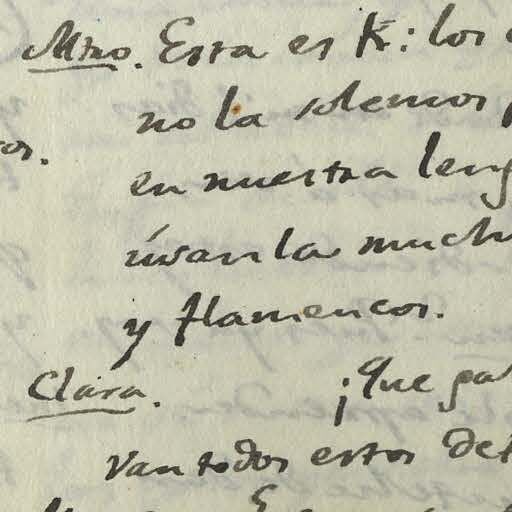 Mtro. Esta es K: los
no la solemos
en nuestra leng
úsanla much
y flamencos.
Clara. ¡Que
van todos estos